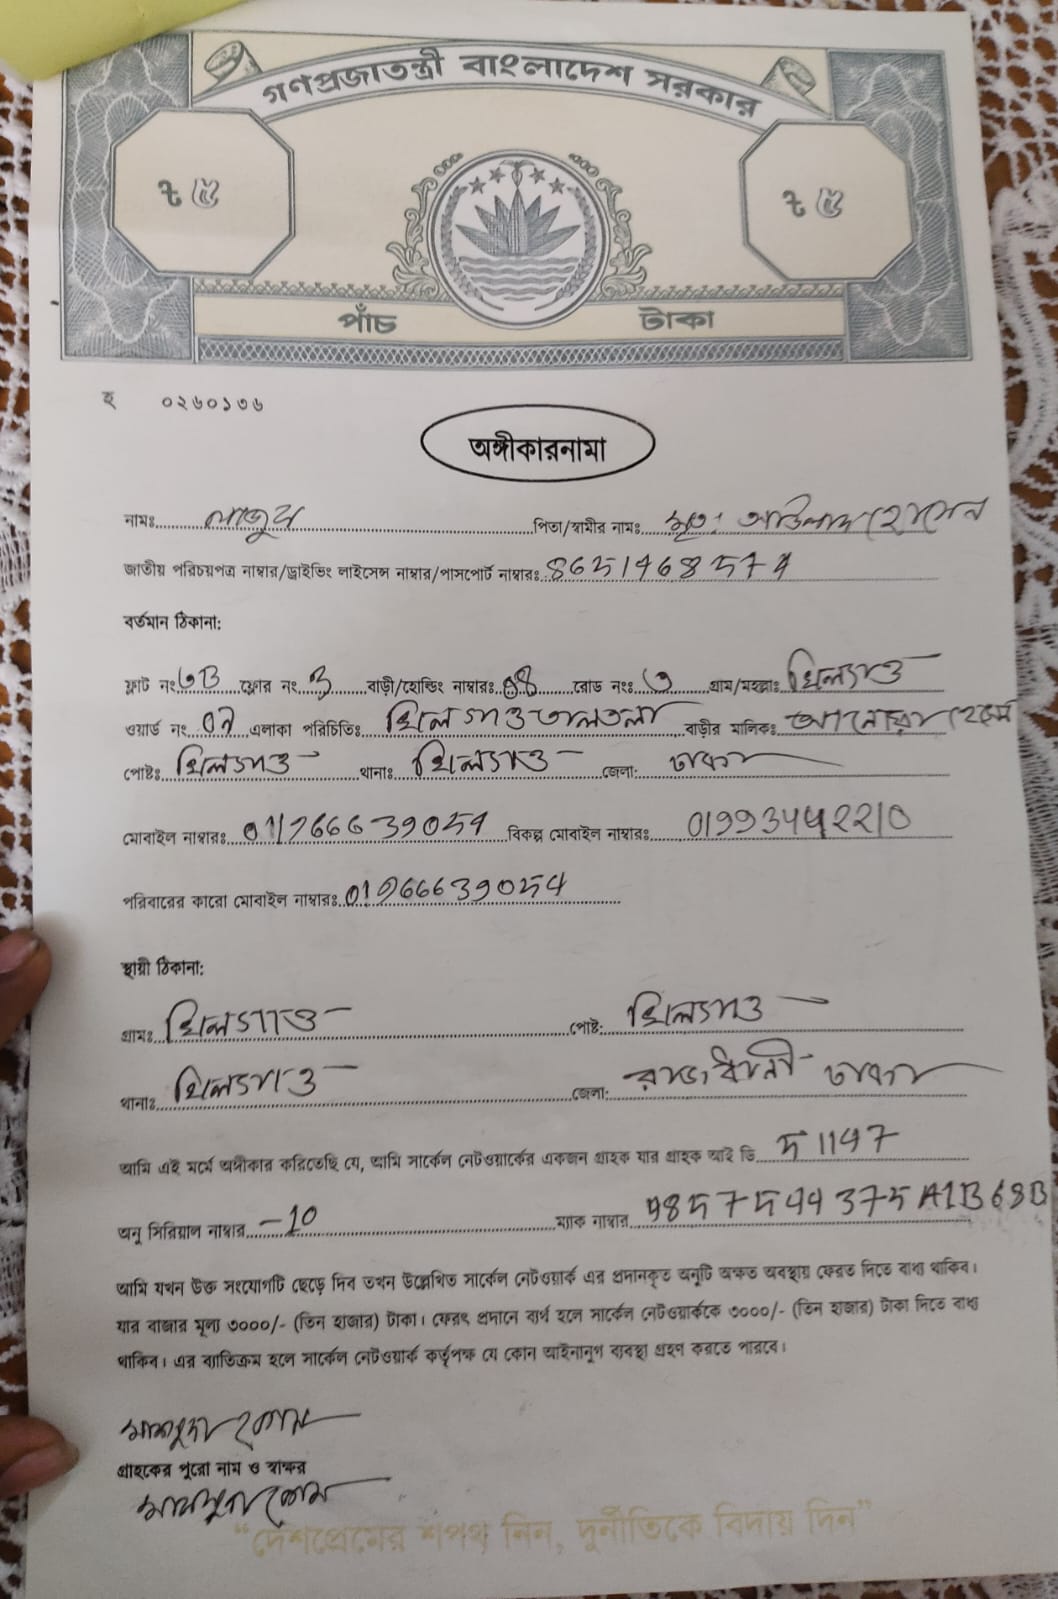 গণপ্রজাতন্ত্রী বাংলাদেশ সরকার
৳ ৫ ৳ ৫
পাঁচ টাকা
হ ০২৬০১৩৬
অঙ্গীকারনামা
নামঃ পিতা/স্বামীর নামঃ মৃতঃ হোসেন
জাতীয় পরিচয়পত্র নাম্বার/ড্রাইভিং লাইসেন্স নাম্বার/পাসপোর্ট নাম্বারঃ
বর্তমান ঠিকানা:
ফ্লাট নং ৩B ফ্লোর নং 3 বাড়ী/হোল্ডিং নাম্বারঃ রোড নংঃ ৩ গ্রাম/মহল্লাঃ খিলগাও
ওয়ার্ড নং এলাকা পরিচিতিঃ খিলগাওতালতলা বাড়ীর মালিকঃ
পোষ্টঃ খিলগাও থানাঃ খিলগাও জেলা: ঢাকা
মোবাইল নাম্বারঃ বিকল্প মোবাইল নাম্বারঃ
পরিবারের কারো মোবাইল নাম্বারঃ
স্থায়ী ঠিকানা:
গ্রামঃ খিলগাও পোষ্ট: খিলগাও
থানাঃ খিলগাও জেলা: রাজধানী ঢাকা
আমি এই মর্মে অঙ্গীকার করিতেছি যে, আমি সার্কেল নেটওয়ার্কের একজন গ্রাহক যার গ্রাহক আই ডি
অনু সিরিয়াল নাম্বার -10 ম্যাক নাম্বার
আমি যখন উক্ত সংযোগটি ছেড়ে দিব তখন উল্লেখিত সার্কেল নেটওয়ার্ক এর প্রদানকৃত অনুটি অক্ষত অবস্থায় ফেরত দিতে বাধ্য থাকিব।
যার বাজার মূল্য ৩০০০/- (তিন হাজার) টাকা। ফেরৎ প্রদানে ব্যর্থ হলে সার্কেল নেটওয়ার্ককে ৩০০০/- (তিন হাজার) টাকা দিতে বাধ্য
থাকিব। এর ব্যাতিক্রম হলে সার্কেল নেটওয়ার্ক কর্তৃপক্ষ যে কোন আইনানুগ ব্যবস্থা গ্রহণ করতে পারবে।
গ্রাহকের পুরো নাম ও স্বাক্ষর
“দেশপ্রেমের শপথ নিন, দুর্নীতিকে বিদায় দিন”